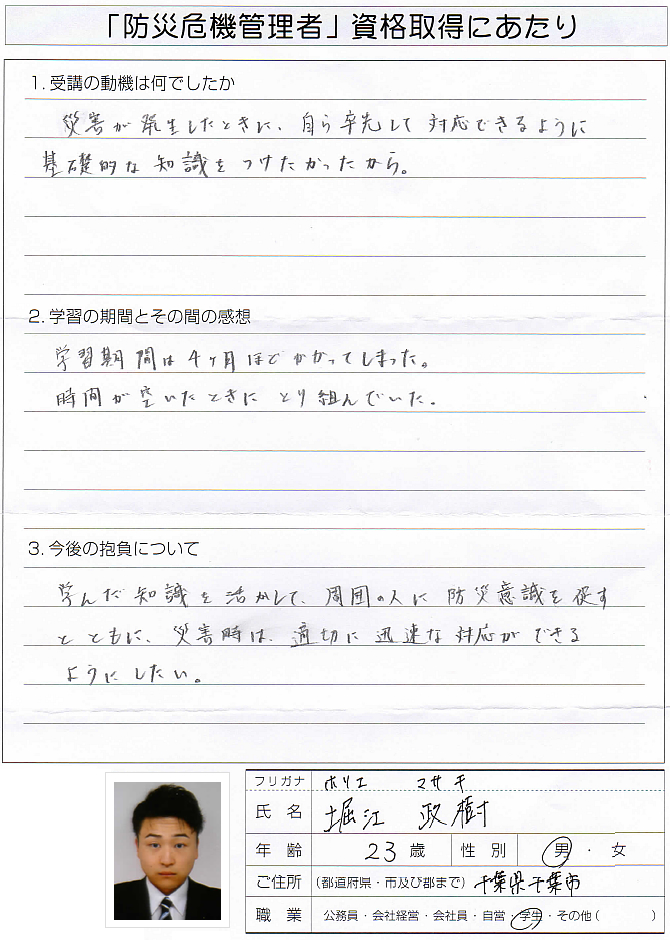 「防災危機管理者」資格取得にあたり
1. 受講の動機は何でしたか
災害が発生したときに、自ら率先して対応できるように
基礎的な知識をつけたかったから。
2. 学習の期間とその間の感想
学習期間は4ヶ月ほどかかってしまった。
時間が空いたときにとり組んでいた。
3. 今後の抱負について
学んだ知識を活かして、周囲の人に防災意識を促す
とともに、災害時は、適切に迅速な対応ができる
ようにしたい。
フリガナ ホリエ マサキ
氏名 堀江 政樹
年齢 23歳 性別 男・女
ご住所 (都道府県・市及び郡まで) 千葉県千葉市
職業 公務員・会社経営・会社員・自営・学生・その他( )